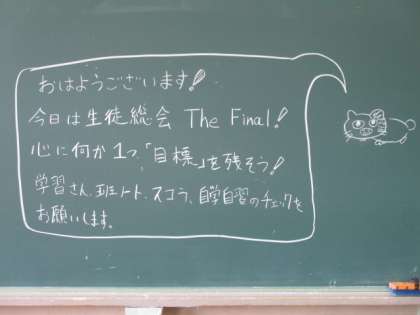 おはようございます!
今日は生徒総会 The Final!
心に何か1つ、「目標」を残そう!
学習さん、班ノート、スコラ、自学自習のチェックを
お願いします。